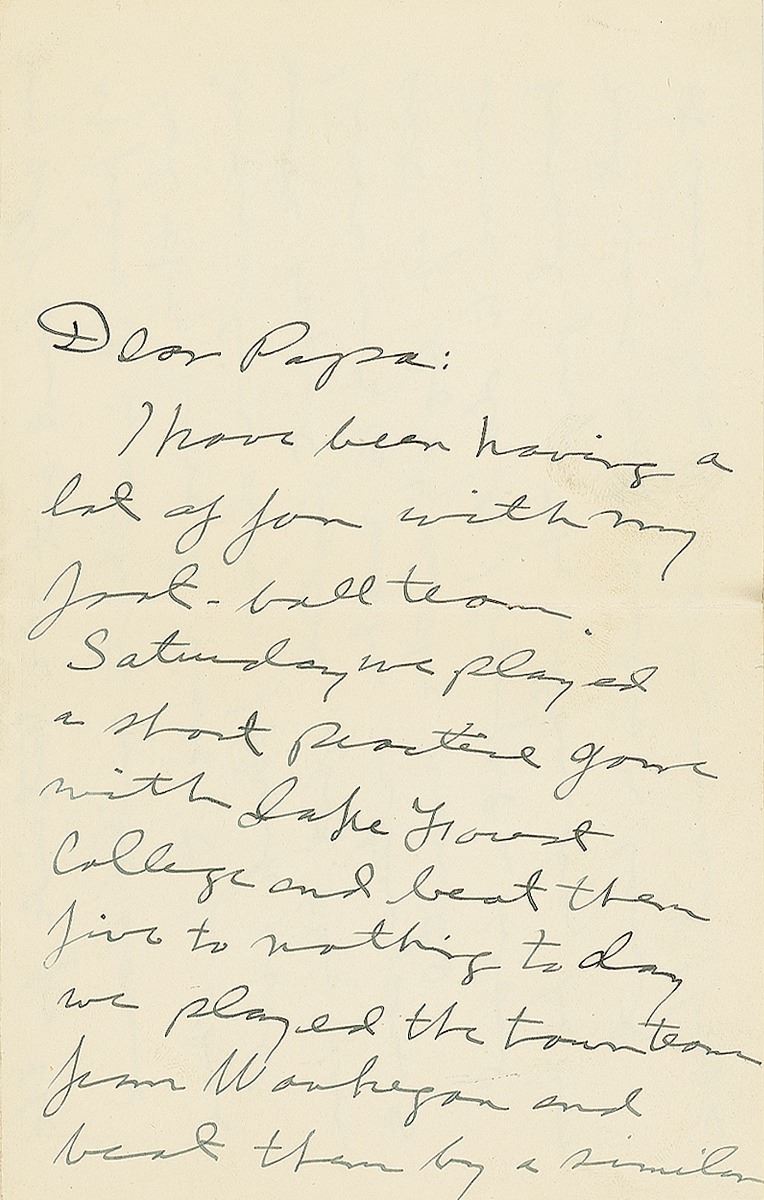 Dear Papa:
I have been having a
lot of fun with my
foot-ball team.
Saturday we played
a short practice game
with Lake Forest
College and beat them
five to nothing to day
we played the town team
from Waukegan and
beat them by a similar